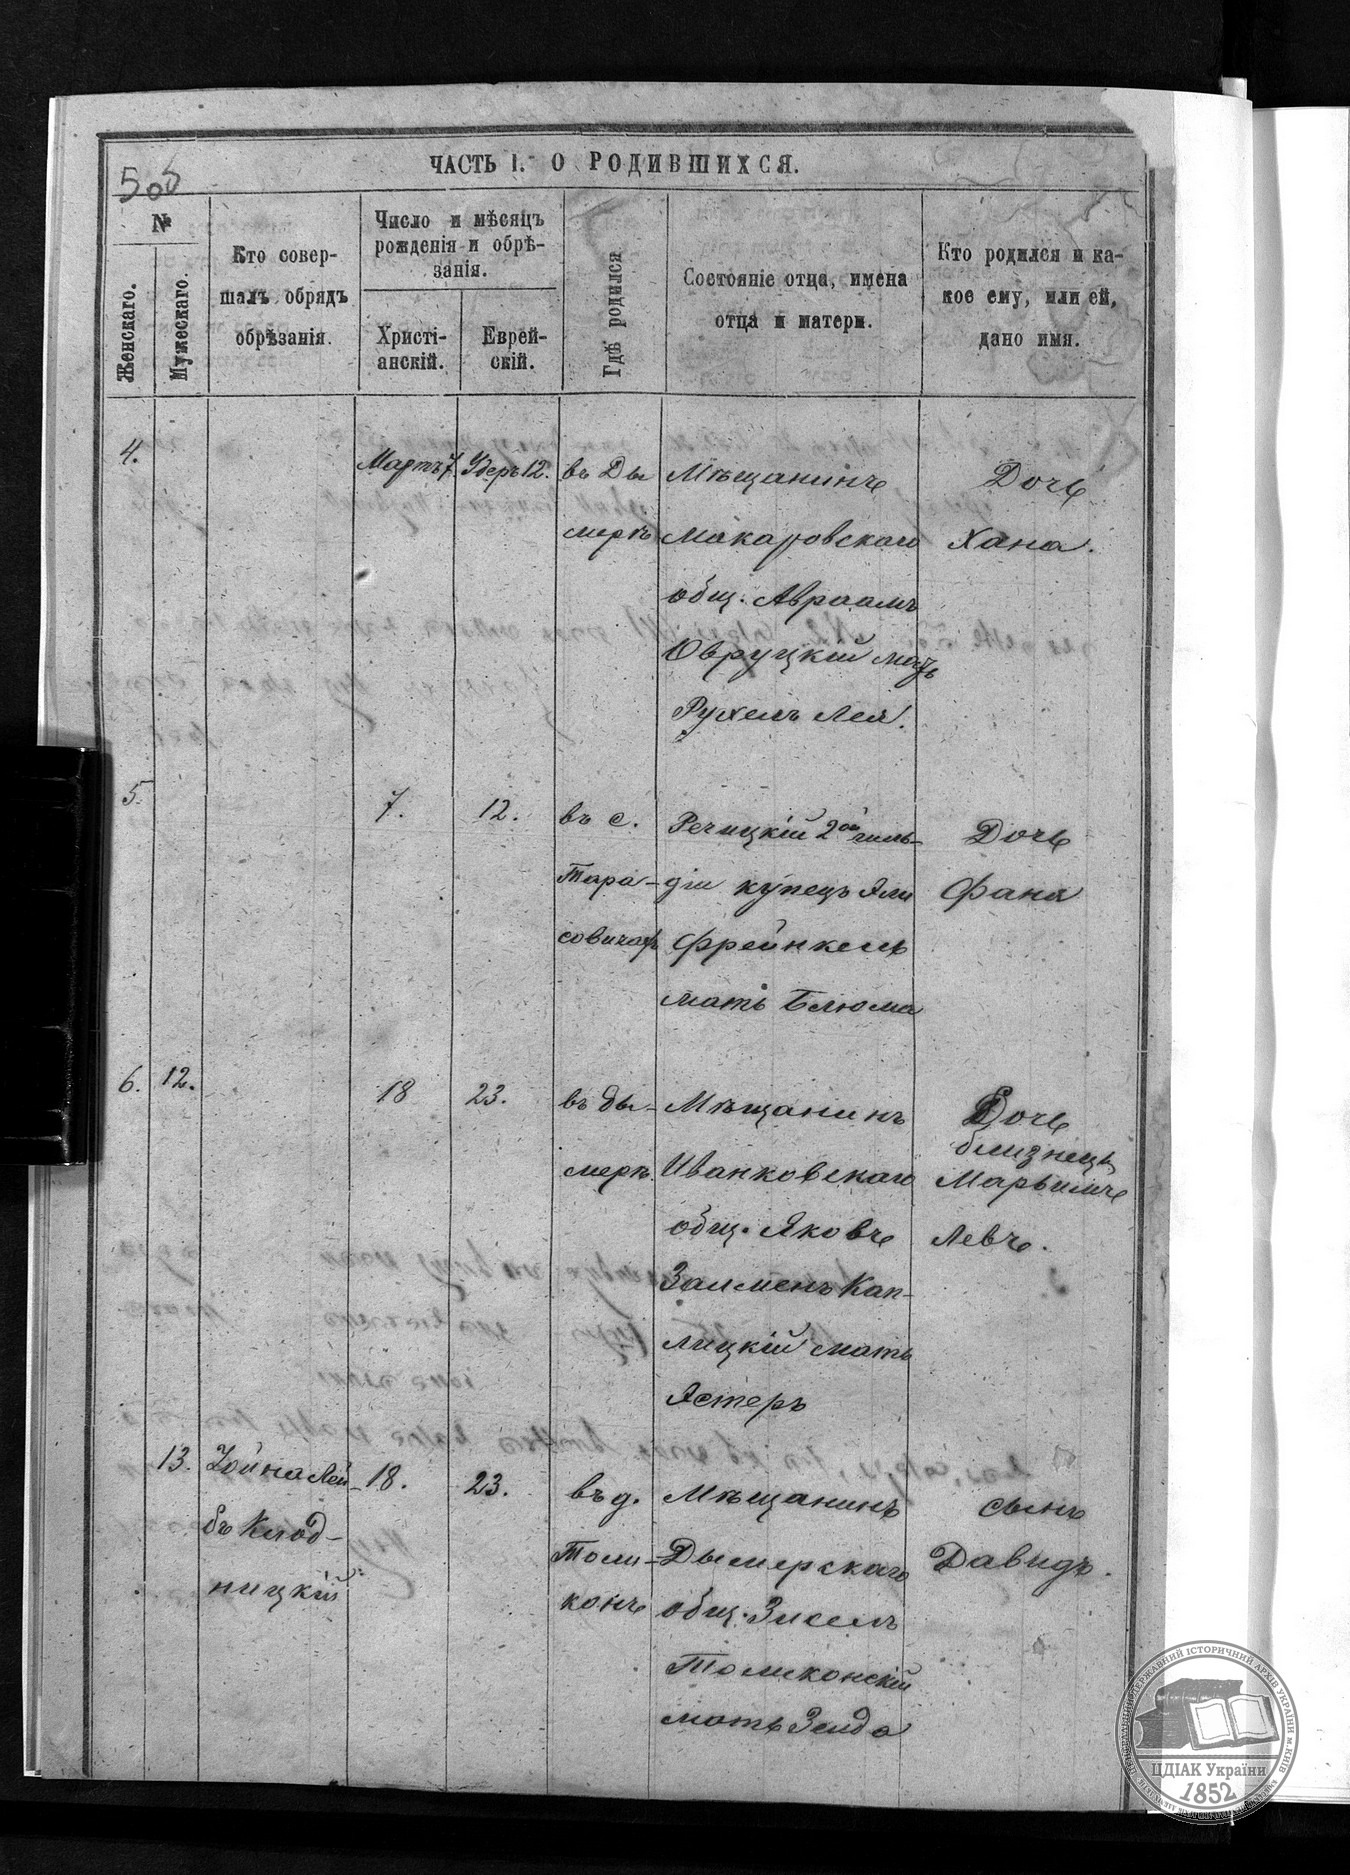 505
ЧАСТЬ I. О РОДИВШИХСЯ.
№
Женскаго.
Мужескаго.
Кто совер-
шалъ обрядъ
обрѣзанія.
Число и мѣсяцъ
рожденія и обрѣ-
занія.
Христі-
анскій.
Еврей-
скій.
Гдѣ родился
Состояніе отца, имена
отца и матери.
Кто родился и ка-
кое ему, или ей,
дано имя.
4.
Мартъ 7.
Удеръ 12.
въ Ды
мерѣ
Мѣщанинъ
Макаровскаго
общ. Авраамъ
Овруцкій мать
Рухель Лея.
Дочь
Хана.
5.
7.
12.
въ с.
Тара-
совичахъ
Речицкій 2ой гиль-
діи купецъ Эли
Фрейнкель
мать Блюма
Дочь
Фаня
6.
12.
18
23.
въ Ды-
мерѣ
Мѣщанинъ
Иванковскаго
общ. Яковъ
Залменъ Кап-
лицкій мать
Эстеръ
Дочь
близнецъ
Марьимъ
Левъ.
13.
Лей-
бъ Клод-
ницкій
18.
23.
въ д.
Толо-
конъ
Мѣщанинъ
Дымерскаго
общ. Зисель
Толоконскій
мать Зелда
сынъ
Давидъ.
ЦДІАК України
1852